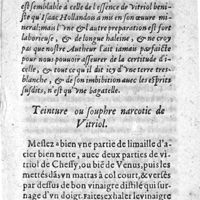 est semblable à celle de l'essence de Vitriol beni-
ste qu'Isaac Hollandois a mis en son œuvre mine-
ral; mais l'vne & l'autre preparation est fort
laborieuse, & de longue haleine, & ne croy
pas que nostre Autheur l'ait iamais parfaicte
pour nous pouuoir asseurer de la certitude d'i-
celle, & tout ce qu'il dit icy d'vne terre tres-
blanche, & de son imbibition auec les esprits
susdits, n'est qu'vne bagatelle.
Teinture ou souphre narcotic de
Vitriol.
Meslez bien vne partie de limaille d'a-
cier bien nette, auec deux parties de vi-
triol de Chessy, ou biẽ de Venus, puis les
mettés dãs vn matras à col court, & versés
par dessus de bon vinaigre distilé qui sur-
nage d'vn doigt. Faites exhaler le vinaigre